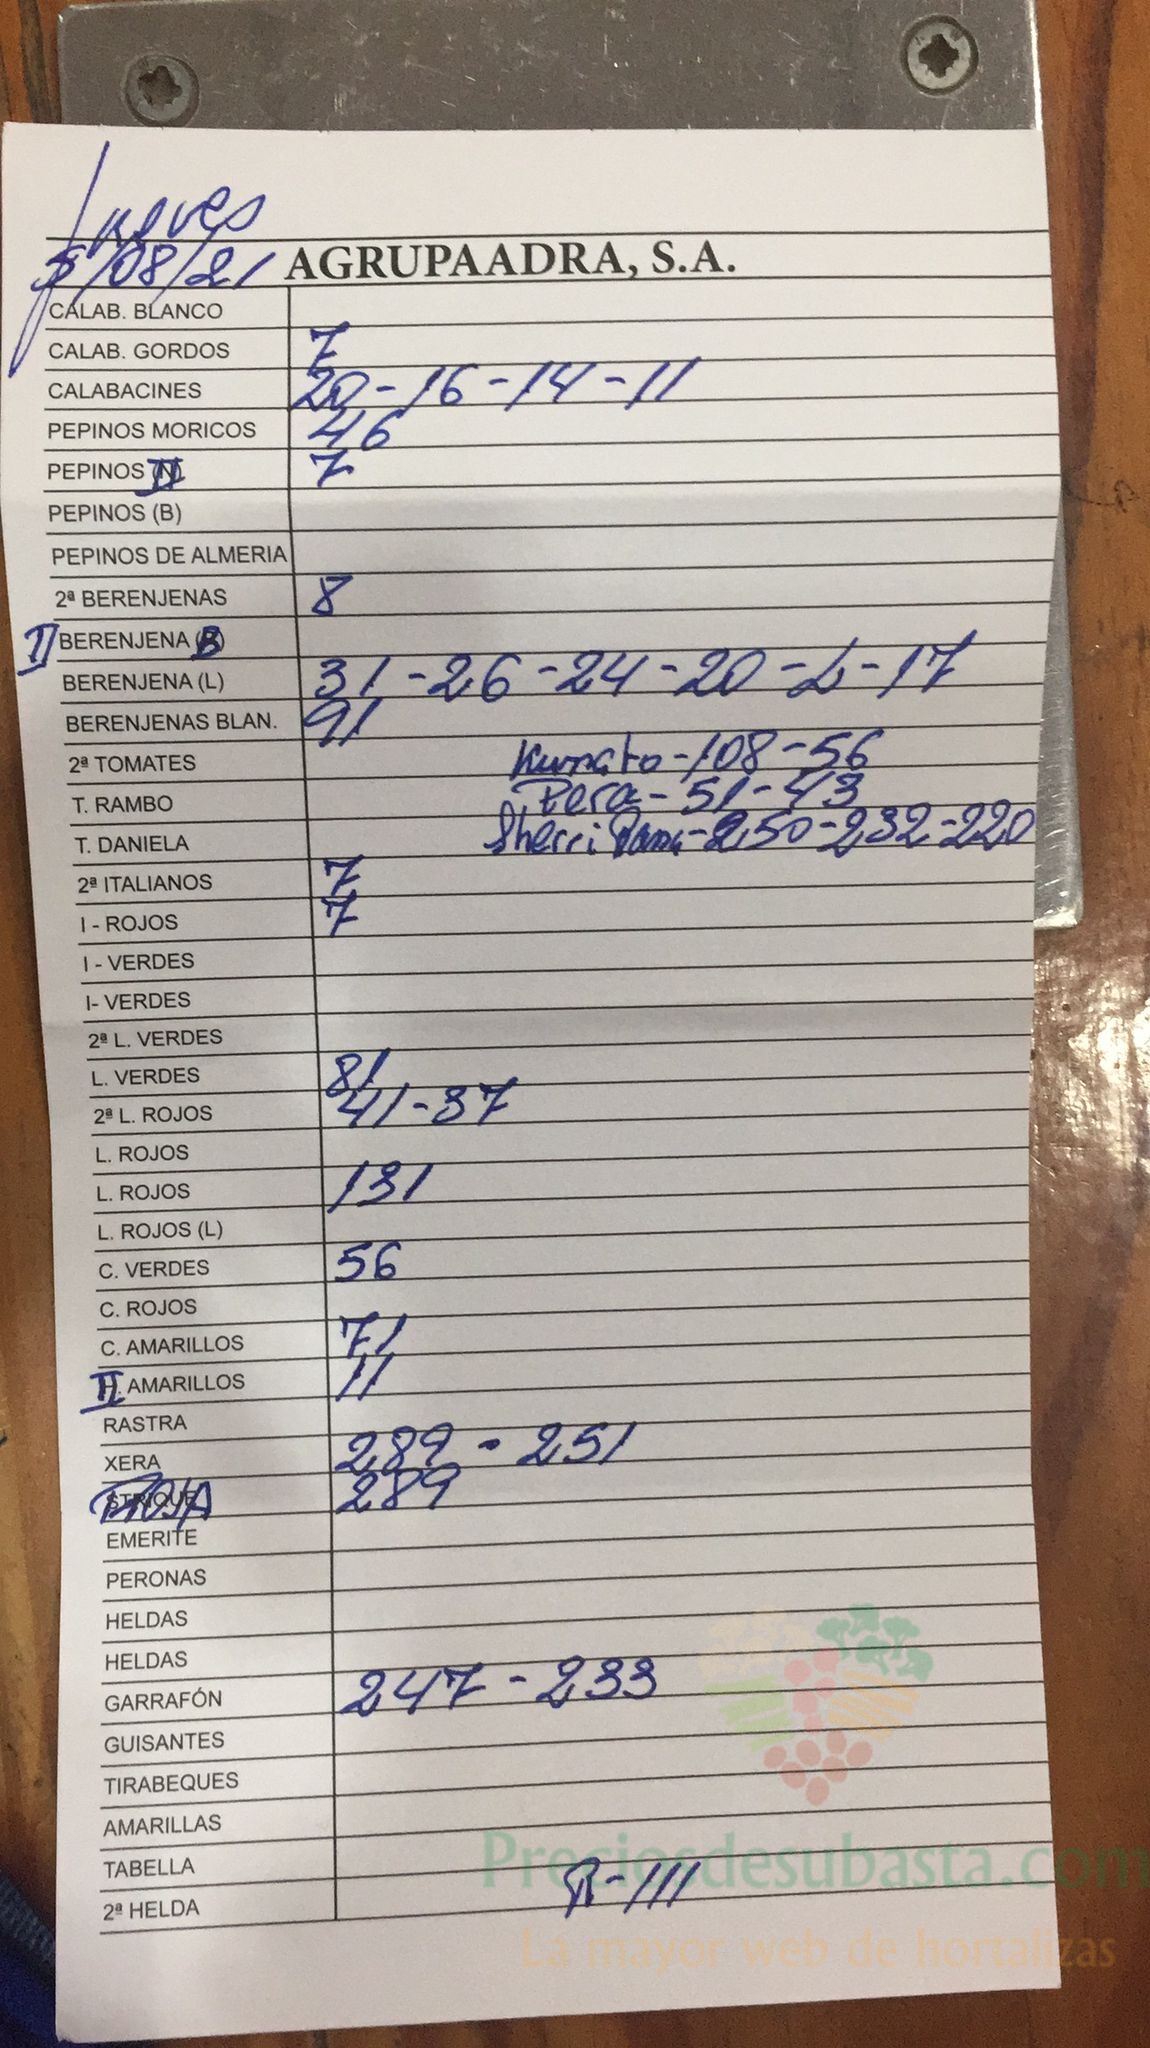 Jueves
5/08/21 AGRUPAADRA, S.A.
CALAB. BLANCO
CALAB. GORDOS 7
CALABACINES 20-16-14-11
PEPINOS MORICOS 46
PEPINOS II 7
PEPINOS (B)
PEPINOS DE ALMERIA
2ª BERENJENAS 8
II BERENJENA B
BERENJENA (L) 31-26-24-20-L-17
BERENJENAS BLAN. 91
2ª TOMATES Kumato-108-56
T. RAMBO Pera-51-43
T. DANIELA Sherri Rama-250-232-220
2ª ITALIANOS 7
I - ROJOS 7
I - VERDES
I- VERDES
2ª L. VERDES
L. VERDES 81
2ª L. ROJOS 41-37
L. ROJOS
L. ROJOS 131
L. ROJOS (L)
C. VERDES 56
C. ROJOS
C. AMARILLOS 71
II. AMARILLOS 11
RASTRA
XERA 289-251
STRIQUE ROJA 289
EMERITE
PERONAS
HELDAS
HELDAS
GARRAFÓN 247-233
GUISANTES
TIRABEQUES
AMARILLAS
TABELLA
2ª HELDA R-111
Preciosdesubasta.com
La mayor web de hortalizas